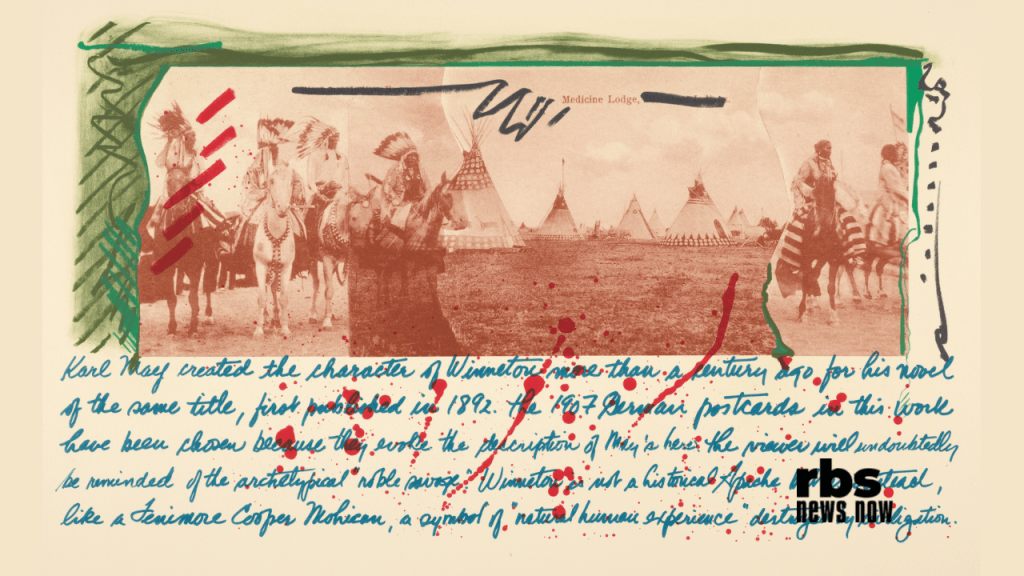 Medicine Lodge,
Karl May created the character of Winnetou more than a century ago for his novel
of the same title, first published in 1892. The 1907 German postcards in this work
have been chosen because they evoke the description of May's hero. The viewer will undoubtedly
be reminded of the archetypical "noble savage." Winnetou is not a historical Apache
like a Fenimore Cooper Mohican, a symbol of "natural human experience" destroyed by civilization.
rbs
news now